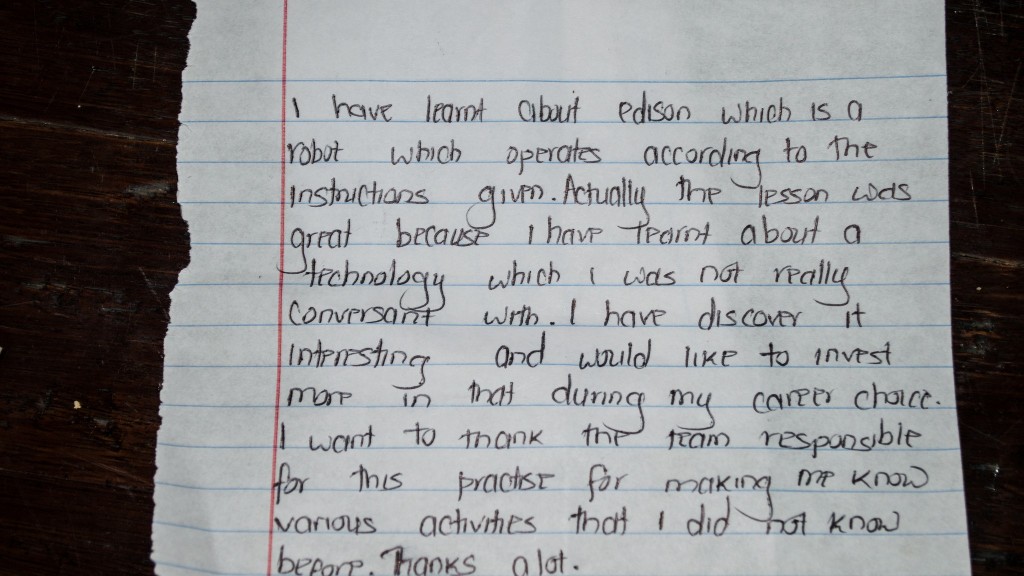 I have learnt about edison which is a
robot which operates according to the
instructions given. Actually the lesson was
great because I have learnt about a
technology which I was not really
conversant with. I have discover it
interesting and would like to invest
more in that during my career choice.
I want to thank the team responsible
for this practise for making me know
various activities that I did not know
before. Thanks alot.